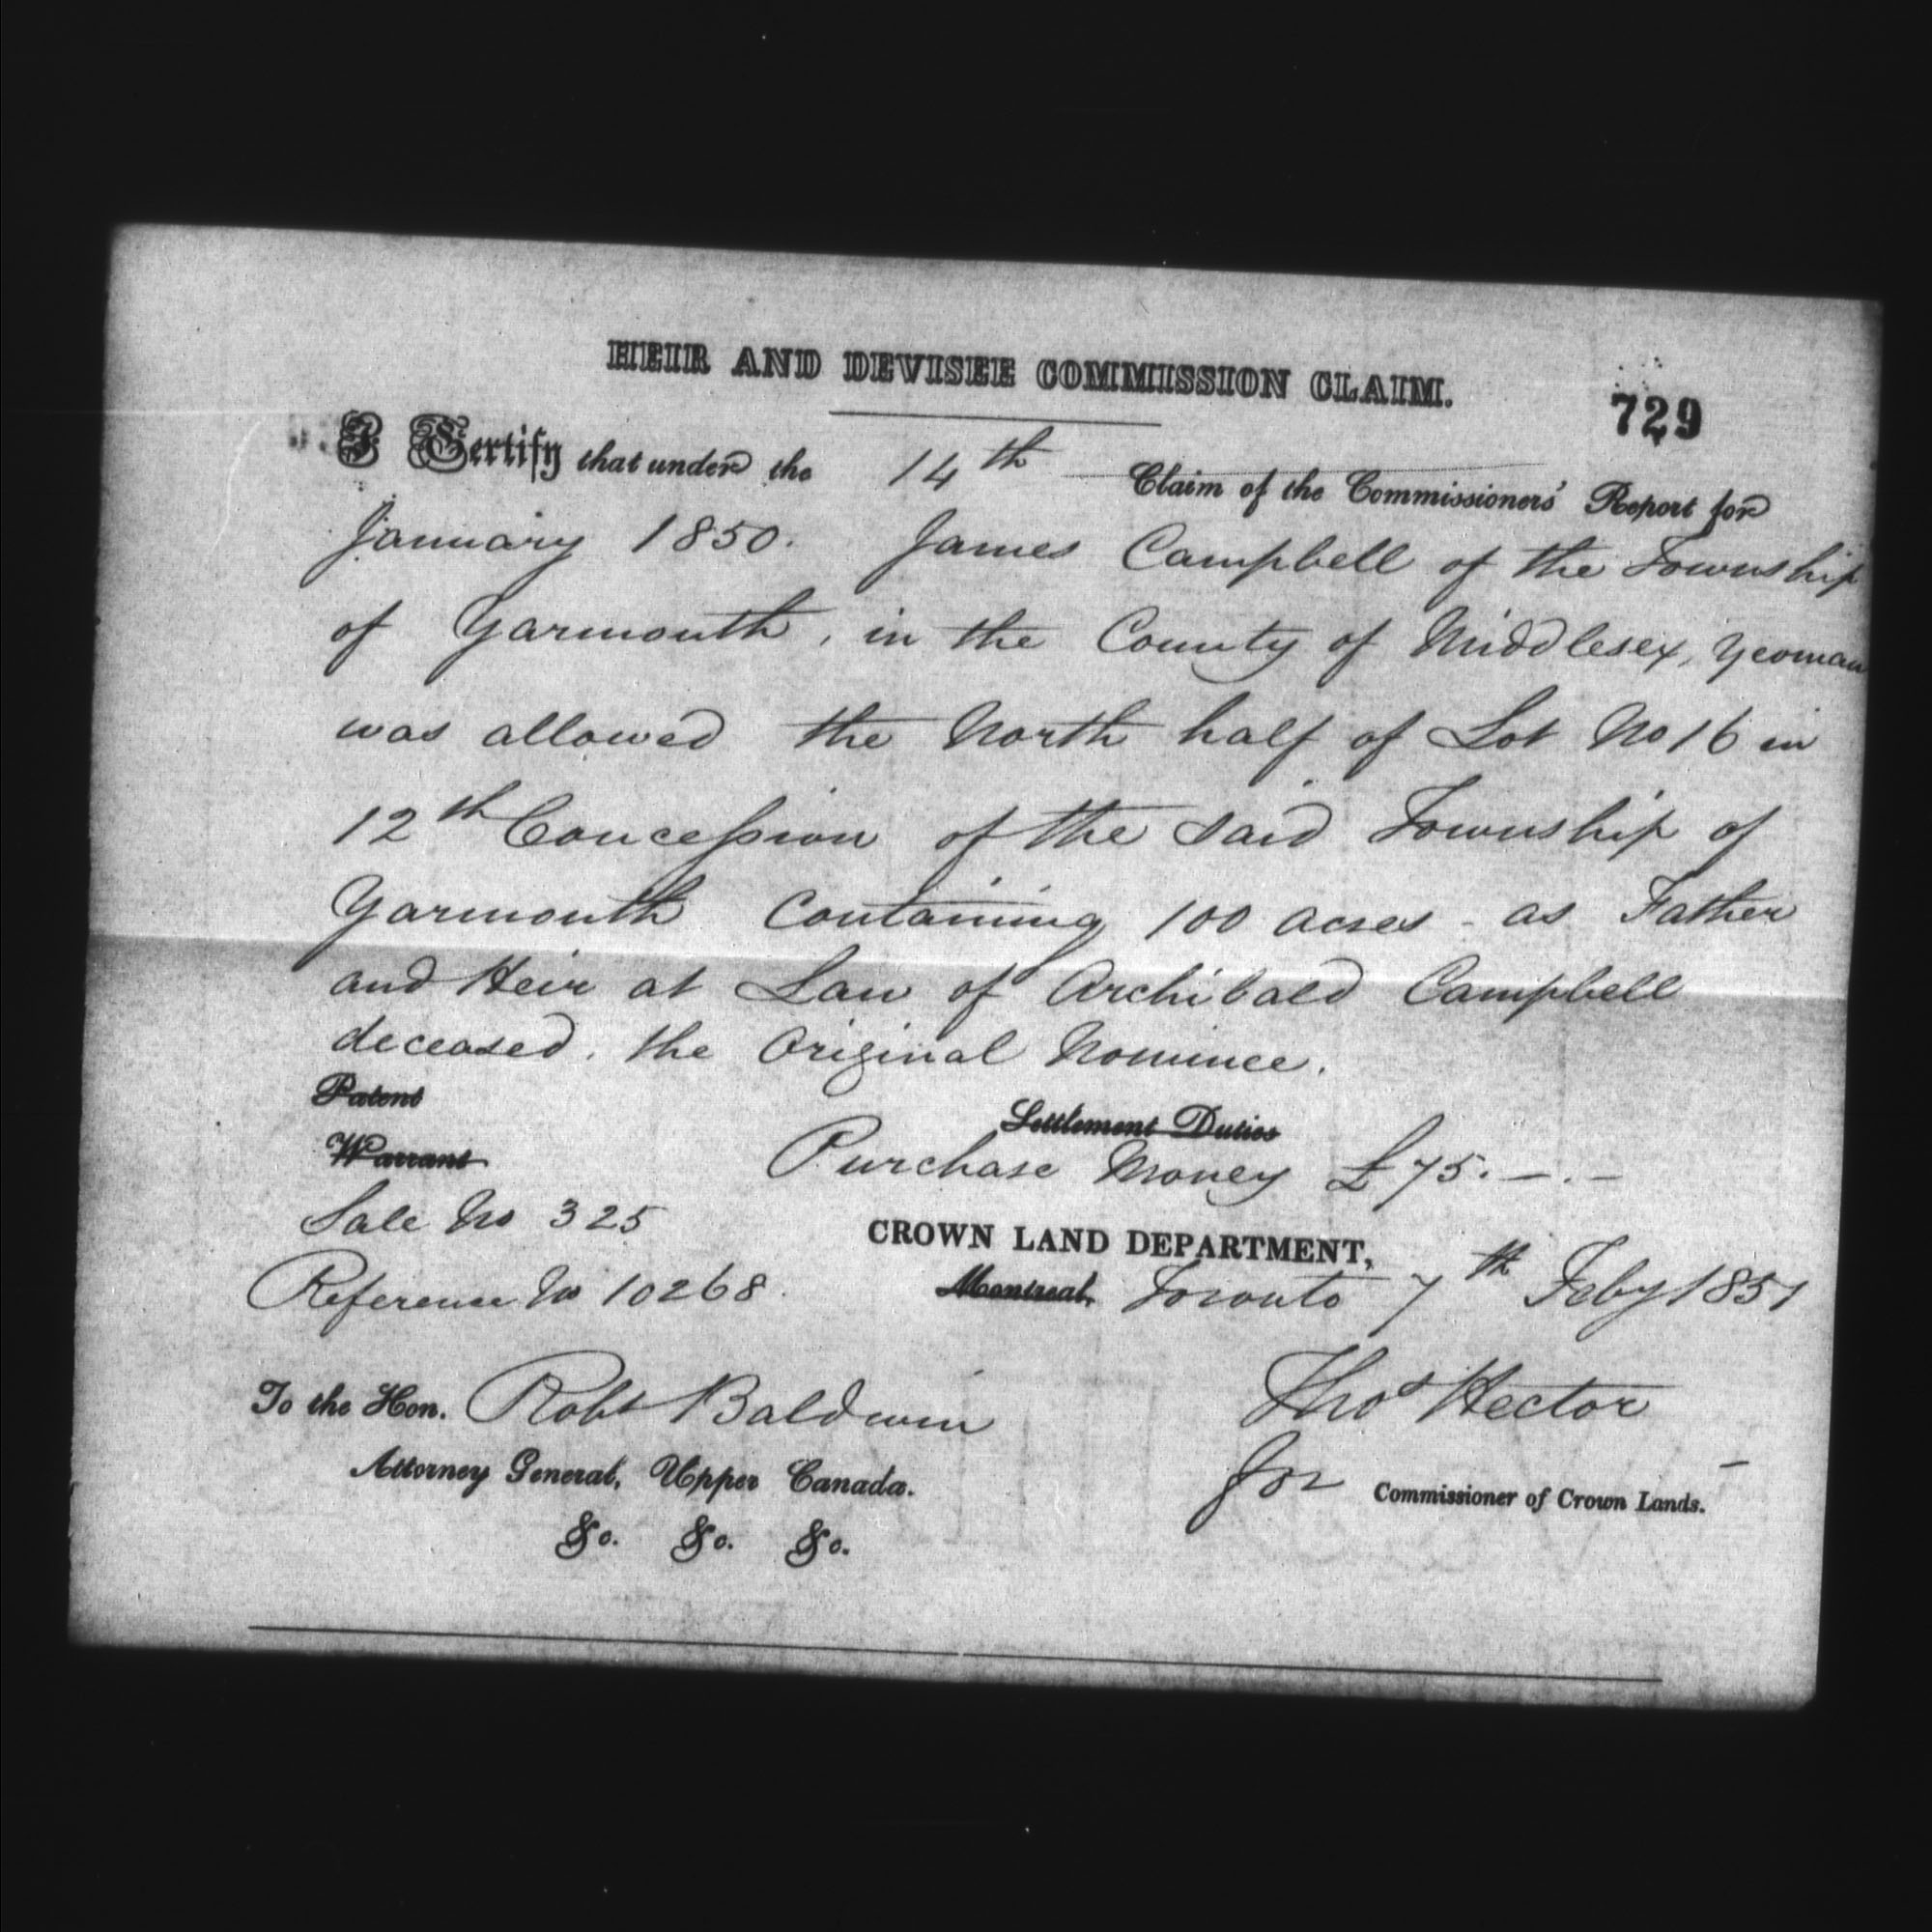 HEIR AND DEVISEE COMMISSION CLAIM.
729
I Certify that under the 14th Claim of the Commissioners' Report for
January 1850. James Campbell of the Township
of Yarmouth, in the County of Middlesex, Yeoman
was allowed the North half of Lot No 16 in
12th Concession of the said Township of
Yarmouth Containing 100 acres - as Father
and Heir at Law of Archibald Campbell
deceased, the Original Nominee.
Patent
Settlement Duties
Warrant
Purchase Money £75. – . –
Sale No 325
CROWN LAND DEPARTMENT,
Reference No 10268.
Montreal, Toronto 7th Feby 1851
To the Hon. Robt Baldwin
Thos Hector
Attorney General, Upper Canada.
for Commissioner of Crown Lands.
&c. &c. &c.